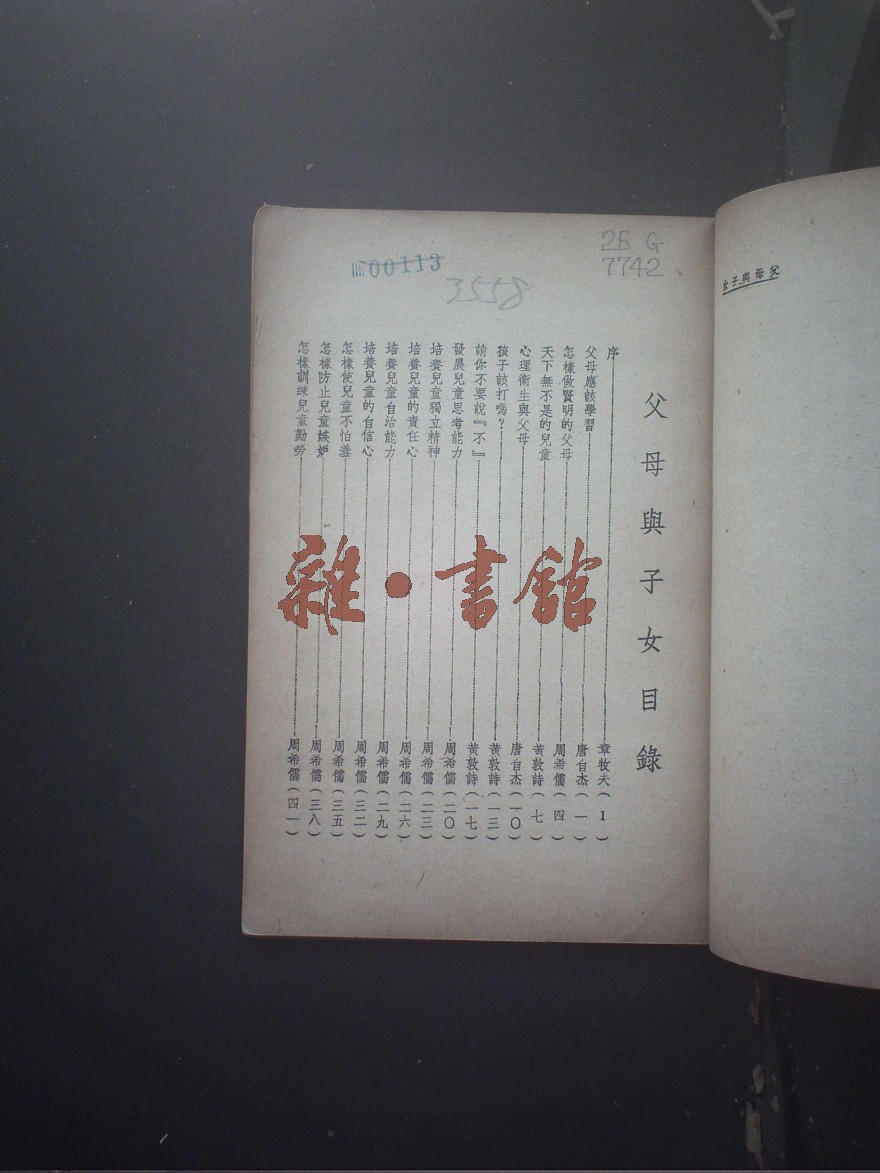 父母與子女目錄
序 章牧夫(1)
父母應該學習 唐自杰(一)
怎樣做賢明的父母 周希儒(四)
天下無不是的兒童 黃敦詩(七)
心理衛生與父母 唐自杰(一〇)
孩子該打嗎? 黃敦詩(一三)
請你不要說『不』 黃敦詩(一七)
發展兒童思考能力 周希儒(二〇)
培養兒童獨立精神 周希儒(二三)
培養兒童的責任心 周希儒(二六)
培養兒童自治能力 周希儒(二九)
培養兒童的自信心 周希儒(三二)
怎樣使兒童不怕羞 周希儒(三五)
怎樣防止兒童嫉妒 周希儒(三八)
怎樣訓練兒童勤勞 周希儒(四一)
00113
3558
25 G
7742
父母與子女
雜·書館